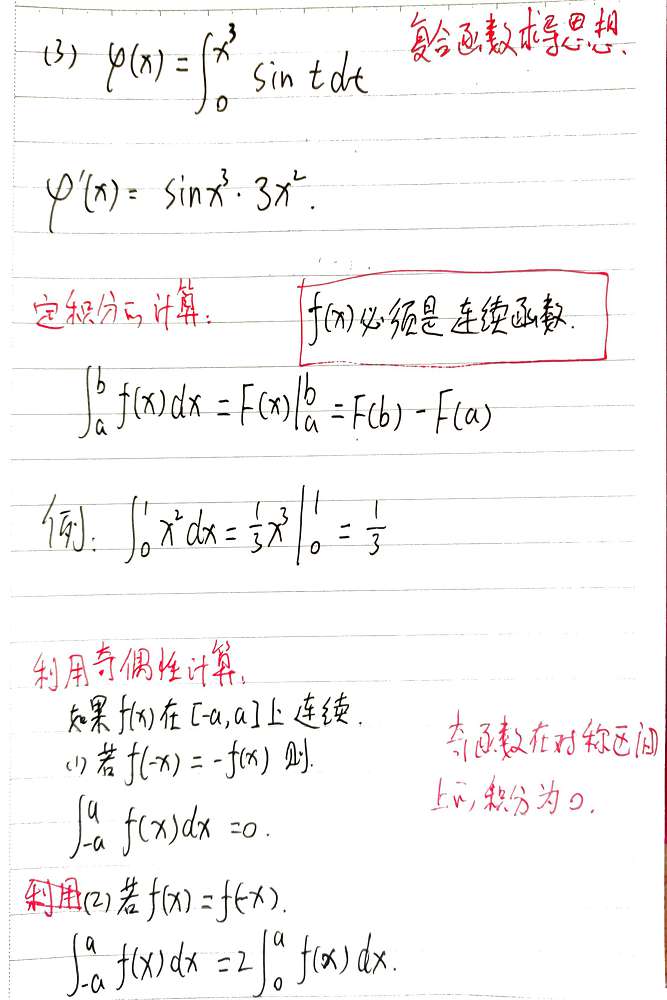 (3) φ(x) = ∫₀^{x³} sin t dt
复合函数求导思想.
φ'(x) = sinx³ · 3x².
定积分的计算:
f(x)必须是连续函数.
∫ₐᵇ f(x)dx = F(x)|ₐᵇ = F(b) - F(a)
例: ∫₀¹ x²dx = 1/3 x³ |₀¹ = 1/3
利用奇偶性计算.
如果f(x)在[-a,a]上连续.
(1) 若 f(-x) = -f(x) 则.
奇函数在对称区间
上的积分为0.
∫₋ₐᵃ f(x)dx = 0.
利用(2)若f(x) = f(-x).
∫₋ₐᵃ f(x)dx = 2∫₀ᵃ f(x)dx.